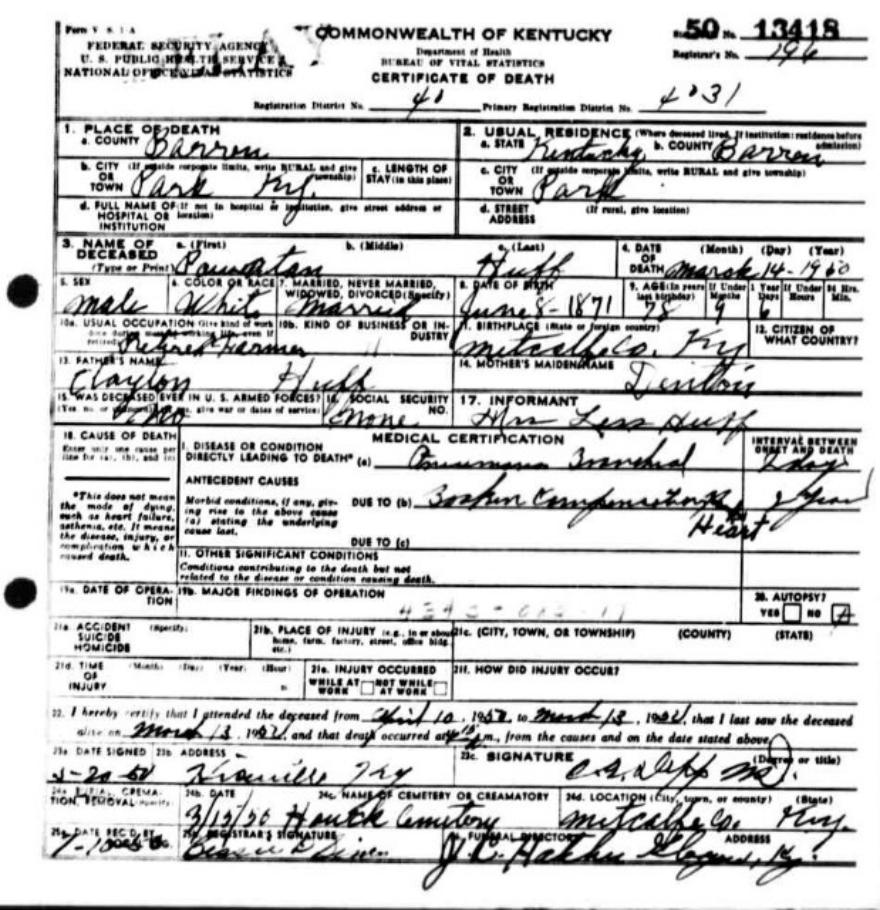 Form V S 1-A
FEDERAL SECURITY AGENCY
U. S. PUBLIC HEALTH SERVICE
NATIONAL OFFICE VITAL STATISTICS
COMMONWEALTH OF KENTUCKY
Department of Health
BUREAU OF VITAL STATISTICS
CERTIFICATE OF DEATH
50 No. 13418
Registrar's No. 196
Registration District No. 40 Primary Registration District No. 4031
1. PLACE OF DEATH
a. COUNTY Barren
2. USUAL RESIDENCE (Where deceased lived. If institution: residence before admission)
a. STATE Kentucky b. COUNTY Barren
b. CITY (If outside corporate limits, write RURAL and give township)
OR TOWN Park Ky.
c. LENGTH OF STAY (in this place)
c. CITY (If outside corporate limits, write RURAL and give township)
OR TOWN Park
d. FULL NAME OF (If not in hospital or institution, give street address or location)
HOSPITAL OR INSTITUTION
d. STREET ADDRESS (If rural, give location)
3. NAME OF DECEASED a. (First) b. (Middle) c. (Last)
(Type or Print) Powhatan Huff
4. DATE OF DEATH (Month) (Day) (Year)
March 14-1950
5. SEX
Male
6. COLOR OR RACE
White
7. MARRIED, NEVER MARRIED, WIDOWED, DIVORCED (Specify)
Married
8. DATE OF BIRTH
June 8-1871
9. AGE (In years last birthday) If Under 1 Year Months Days If Under 24 Hrs. Hours Min.
78 9 6
10a. USUAL OCCUPATION (Give kind of work done during most of working life, even if retired)
Retired Farmer
10b. KIND OF BUSINESS OR INDUSTRY
11. BIRTHPLACE (State or foreign country)
Metcalfe Co. Ky
12. CITIZEN OF WHAT COUNTRY?
13. FATHER'S NAME
Clayton Huff
14. MOTHER'S MAIDEN NAME
15. WAS DECEASED EVER IN U. S. ARMED FORCES?
(Yes, no, or unknown) (If yes, give war or dates of service)
no
16. SOCIAL SECURITY NO.
None
17. INFORMANT
Mrs Less Huff
18. CAUSE OF DEATH
Enter only one cause per line for (a), (b), and (c)
MEDICAL CERTIFICATION
INTERVAL BETWEEN ONSET AND DEATH
I. DISEASE OR CONDITION
DIRECTLY LEADING TO DEATH* (a) Pneumonia Bronchial 2 days
*This does not mean the mode of dying, such as heart failure, asthenia, etc. It means the disease, injury, or complication which caused death.
ANTECEDENT CAUSES
Morbid conditions, if any, giving rise to the above cause (a) stating the underlying cause last.
DUE TO (b) Broken Compensation Heart
DUE TO (c)
11. OTHER SIGNIFICANT CONDITIONS
Conditions contributing to the death but not
related to the disease or condition causing death.
19a. DATE OF OPERATION
19b. MAJOR FINDINGS OF OPERATION
20. AUTOPSY?
YES NO
21a. ACCIDENT SUICIDE HOMICIDE (Specify)
21b. PLACE OF INJURY (e.g., in or about home, farm, factory, street, office bldg. etc.)
21c. (CITY, TOWN, OR TOWNSHIP) (COUNTY) (STATE)
21d. TIME OF INJURY (Month) (Day) (Year) (Hour) m
21e. INJURY OCCURRED
WHILE AT WORK NOT WHILE AT WORK
21f. HOW DID INJURY OCCUR?
22. I hereby certify that I attended the deceased from April 10, 1950, to March 13, 1950, that I last saw the deceased
alive on March 13, 1950, and that death occurred at m., from the causes and on the date stated above.
23a. DATE SIGNED
-20-50
23b. ADDRESS
Ky
23c. SIGNATURE (Degree or title)
Depp MD.
24a. BURIAL, CREMATION, REMOVAL (Specify)
24b. DATE
3/15/50
24c. NAME OF CEMETERY OR CREAMATORY
Houck Cemetery
24d. LOCATION (City, town, or county) (State)
Metcalfe Co. Ky.
25a. DATE REC'D BY
25b. REGISTRAR'S SIGNATURE
Bessie
FUNERAL DIRECTOR ADDRESS
J. C. Hatcher Ky.